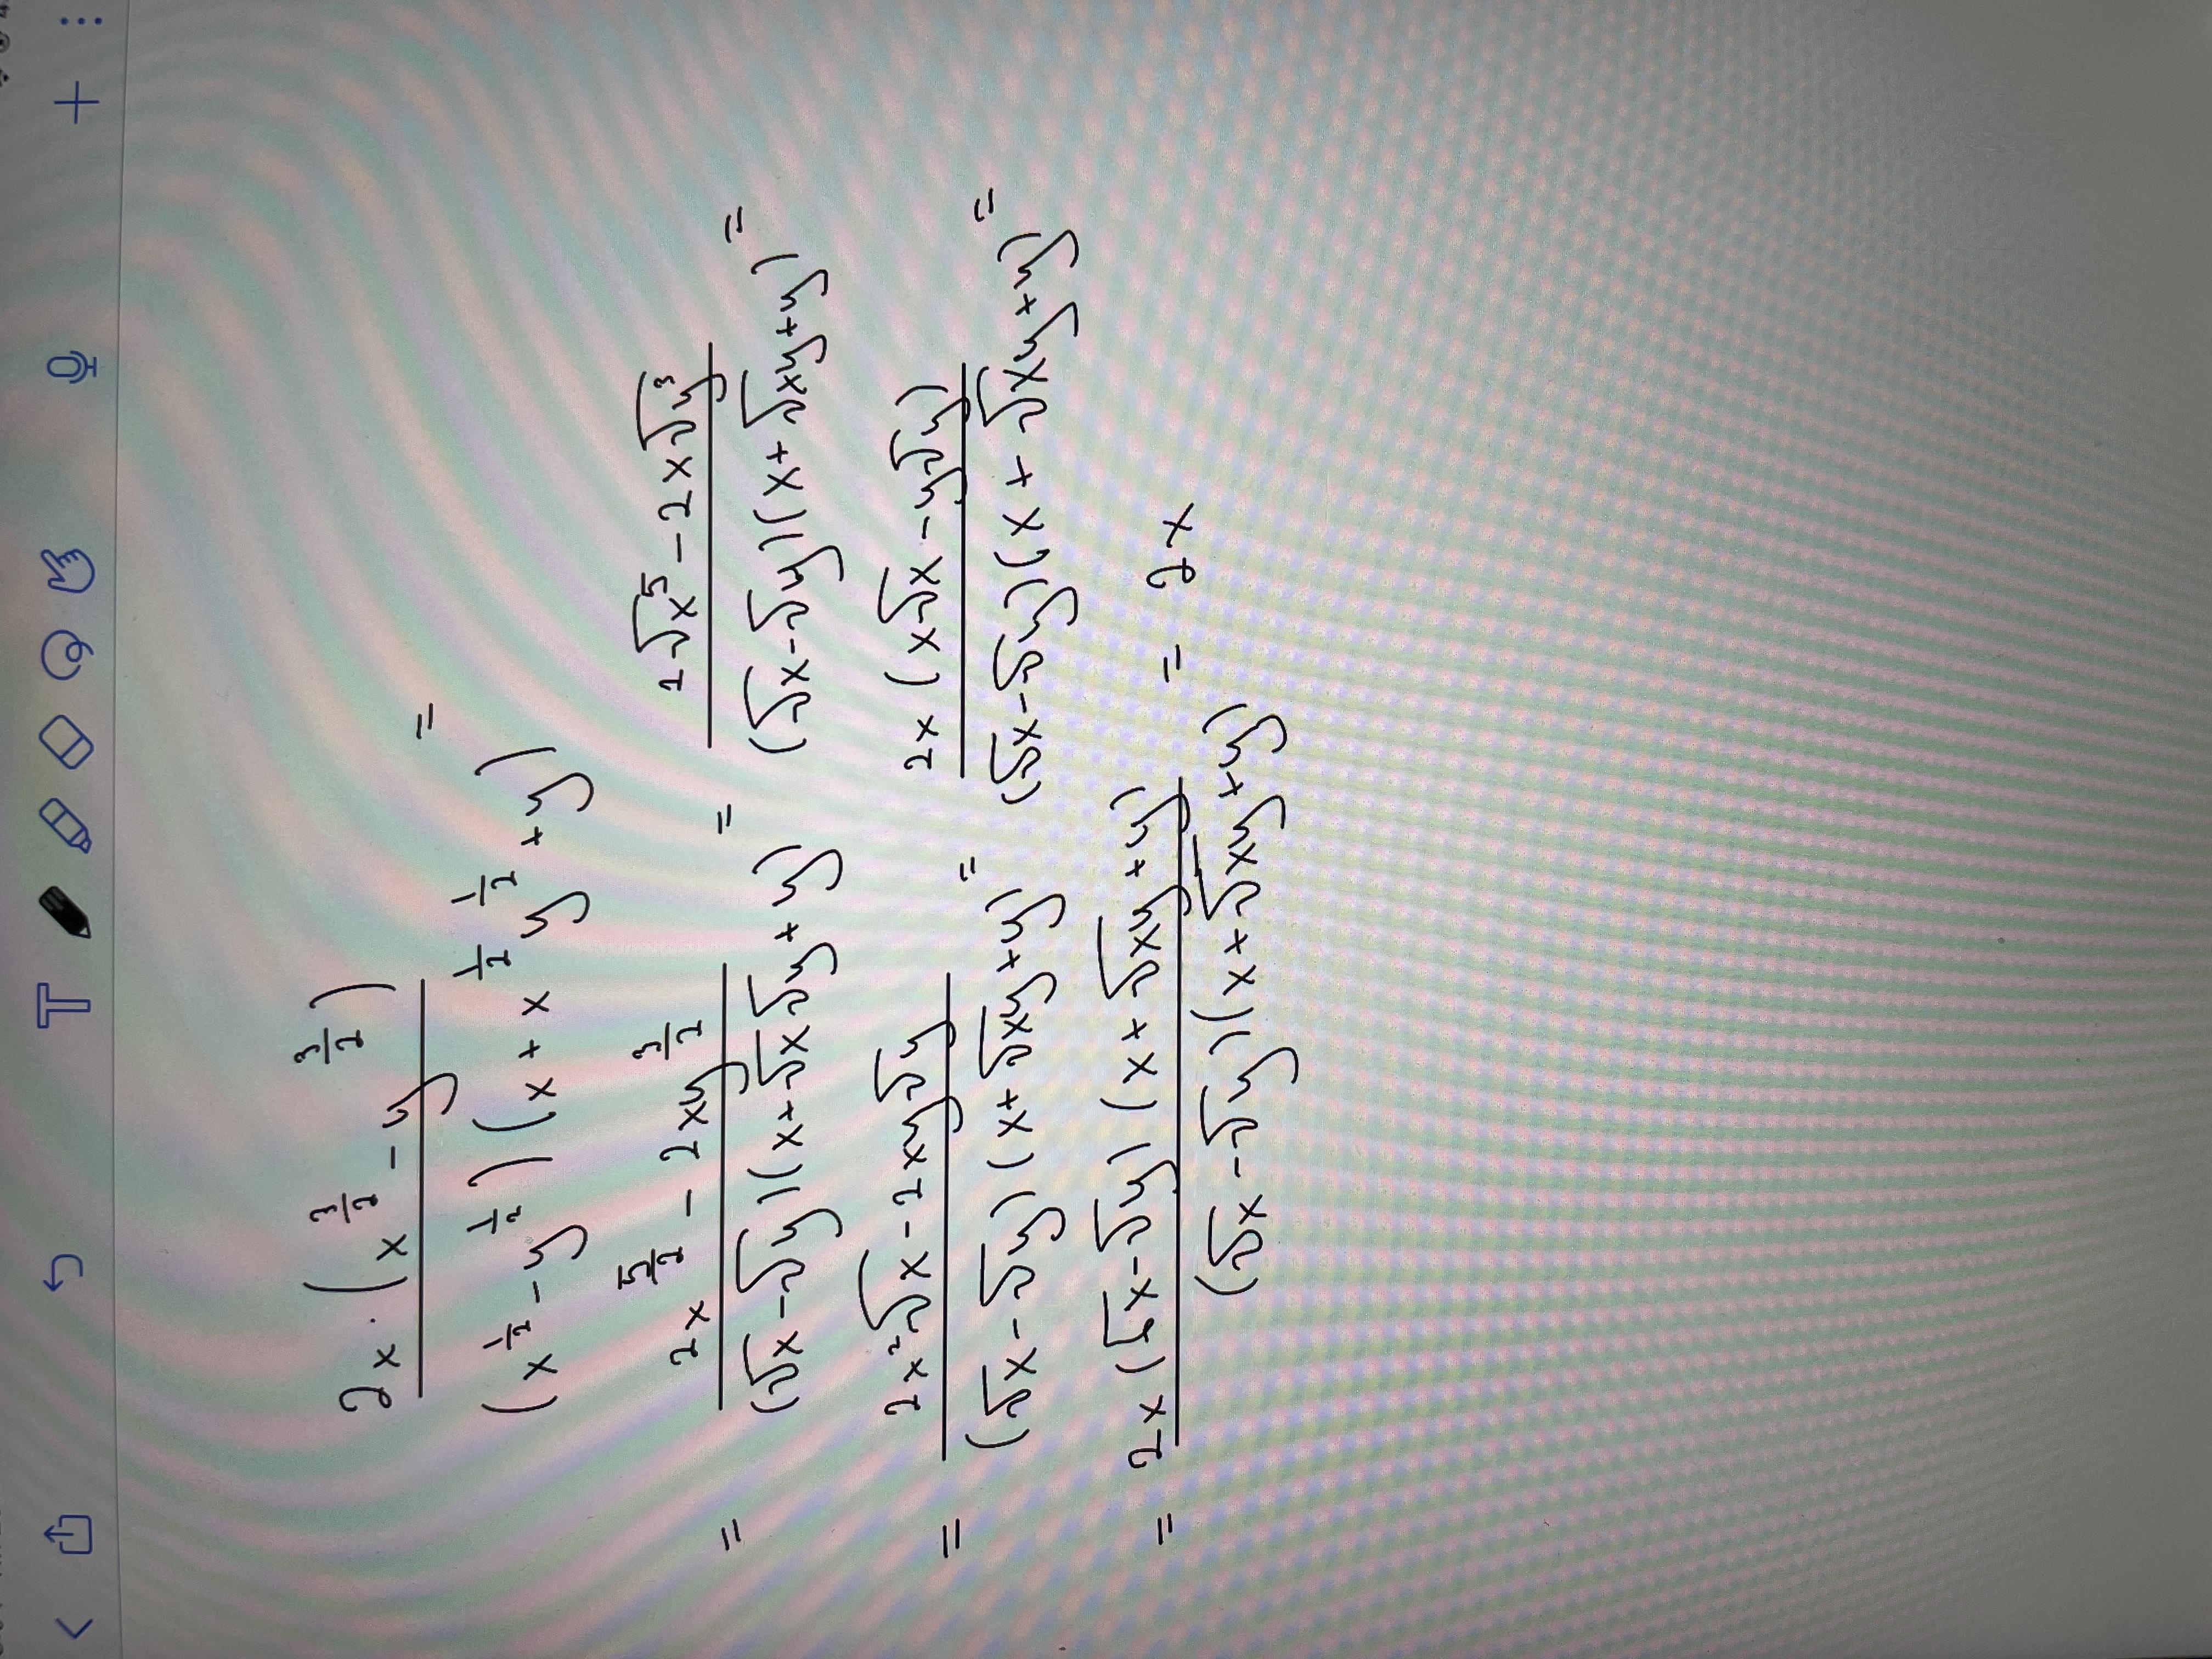 2x · (x^(3/2) - y^(3/2)) / (x^(1/2) - y^(1/2)) (x + x^(1/2) y^(1/2) + y) =
= (2x^(5/2) - 2xy^(3/2)) / (√x - √y)(x + √x √y + y) = (2√x^5 - 2x√y^3) / (√x - √y)(x + √xy + y) =
= (2x²√x - 2xy√y) / (√x - √y)(x + √xy + y) = 2x (x√x - y√y) / (√x - √y)(x + √xy + y) =
= 2x (√x - √y)(x + √xy + y) / (√x - √y)(x + √xy + y) = 2x